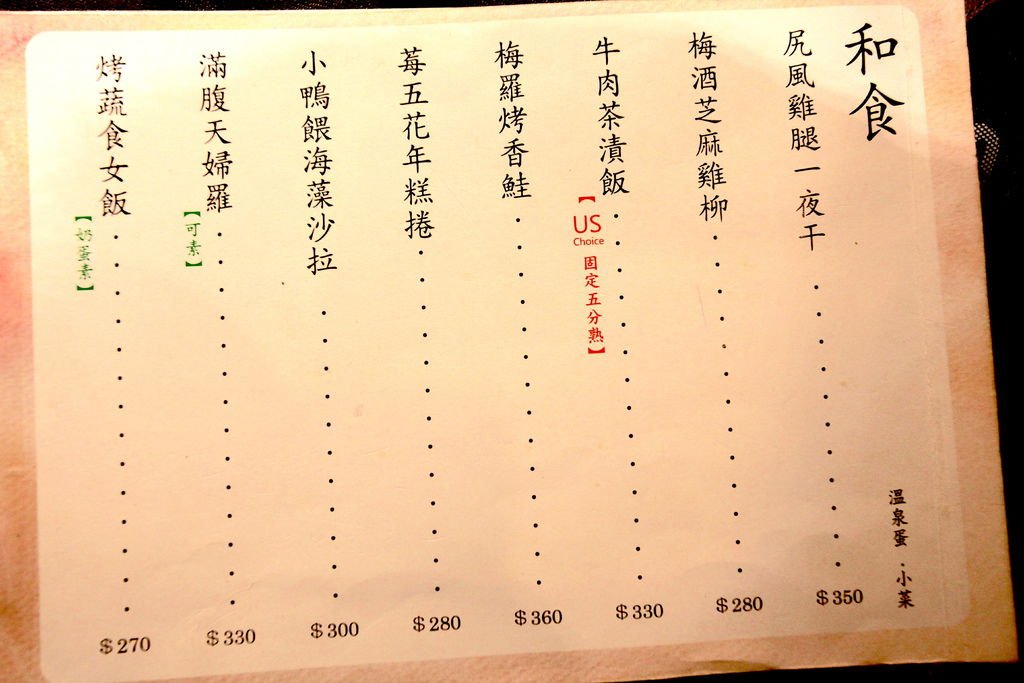 和食
溫泉蛋．小菜
尻風雞腿一夜干
$350
梅酒芝麻雞柳
$280
牛肉茶漬飯
【US Choice 固定五分熟】
$330
梅羅烤香鮭
$360
莓五花年糕捲
$280
小鴨餵海藻沙拉
$300
滿腹天婦羅
【可素】
$330
烤蔬食女飯
【奶蛋素】
$270